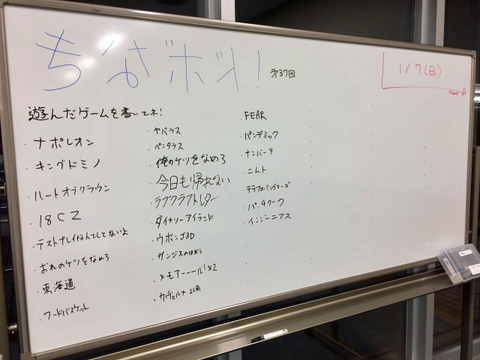 ちなボド!
第37回
1/7(日)
遊んだゲームを書いてネ!
・ナポレオン
・キングドミノ
・ハートオブクラウン
・18CZ
・テストプレイなんてしてないよ
・おれのケツをなめろ
・東海道
・フードバスケット
・ヤバラス
・ペンタラス
・俺のケツをなめろ
・今日も帰れない
・ラブクラフトレター
・ダイナソーアイランド
・ウボンゴ3D
・ガンジスのほとり
・メモアーール!×2
・カヴェルナ
・FEAR
・パンデミック
・ナンバー9
・ニムト
・テラフォーミングマーズ
・パッチワーク
・インジーニアス